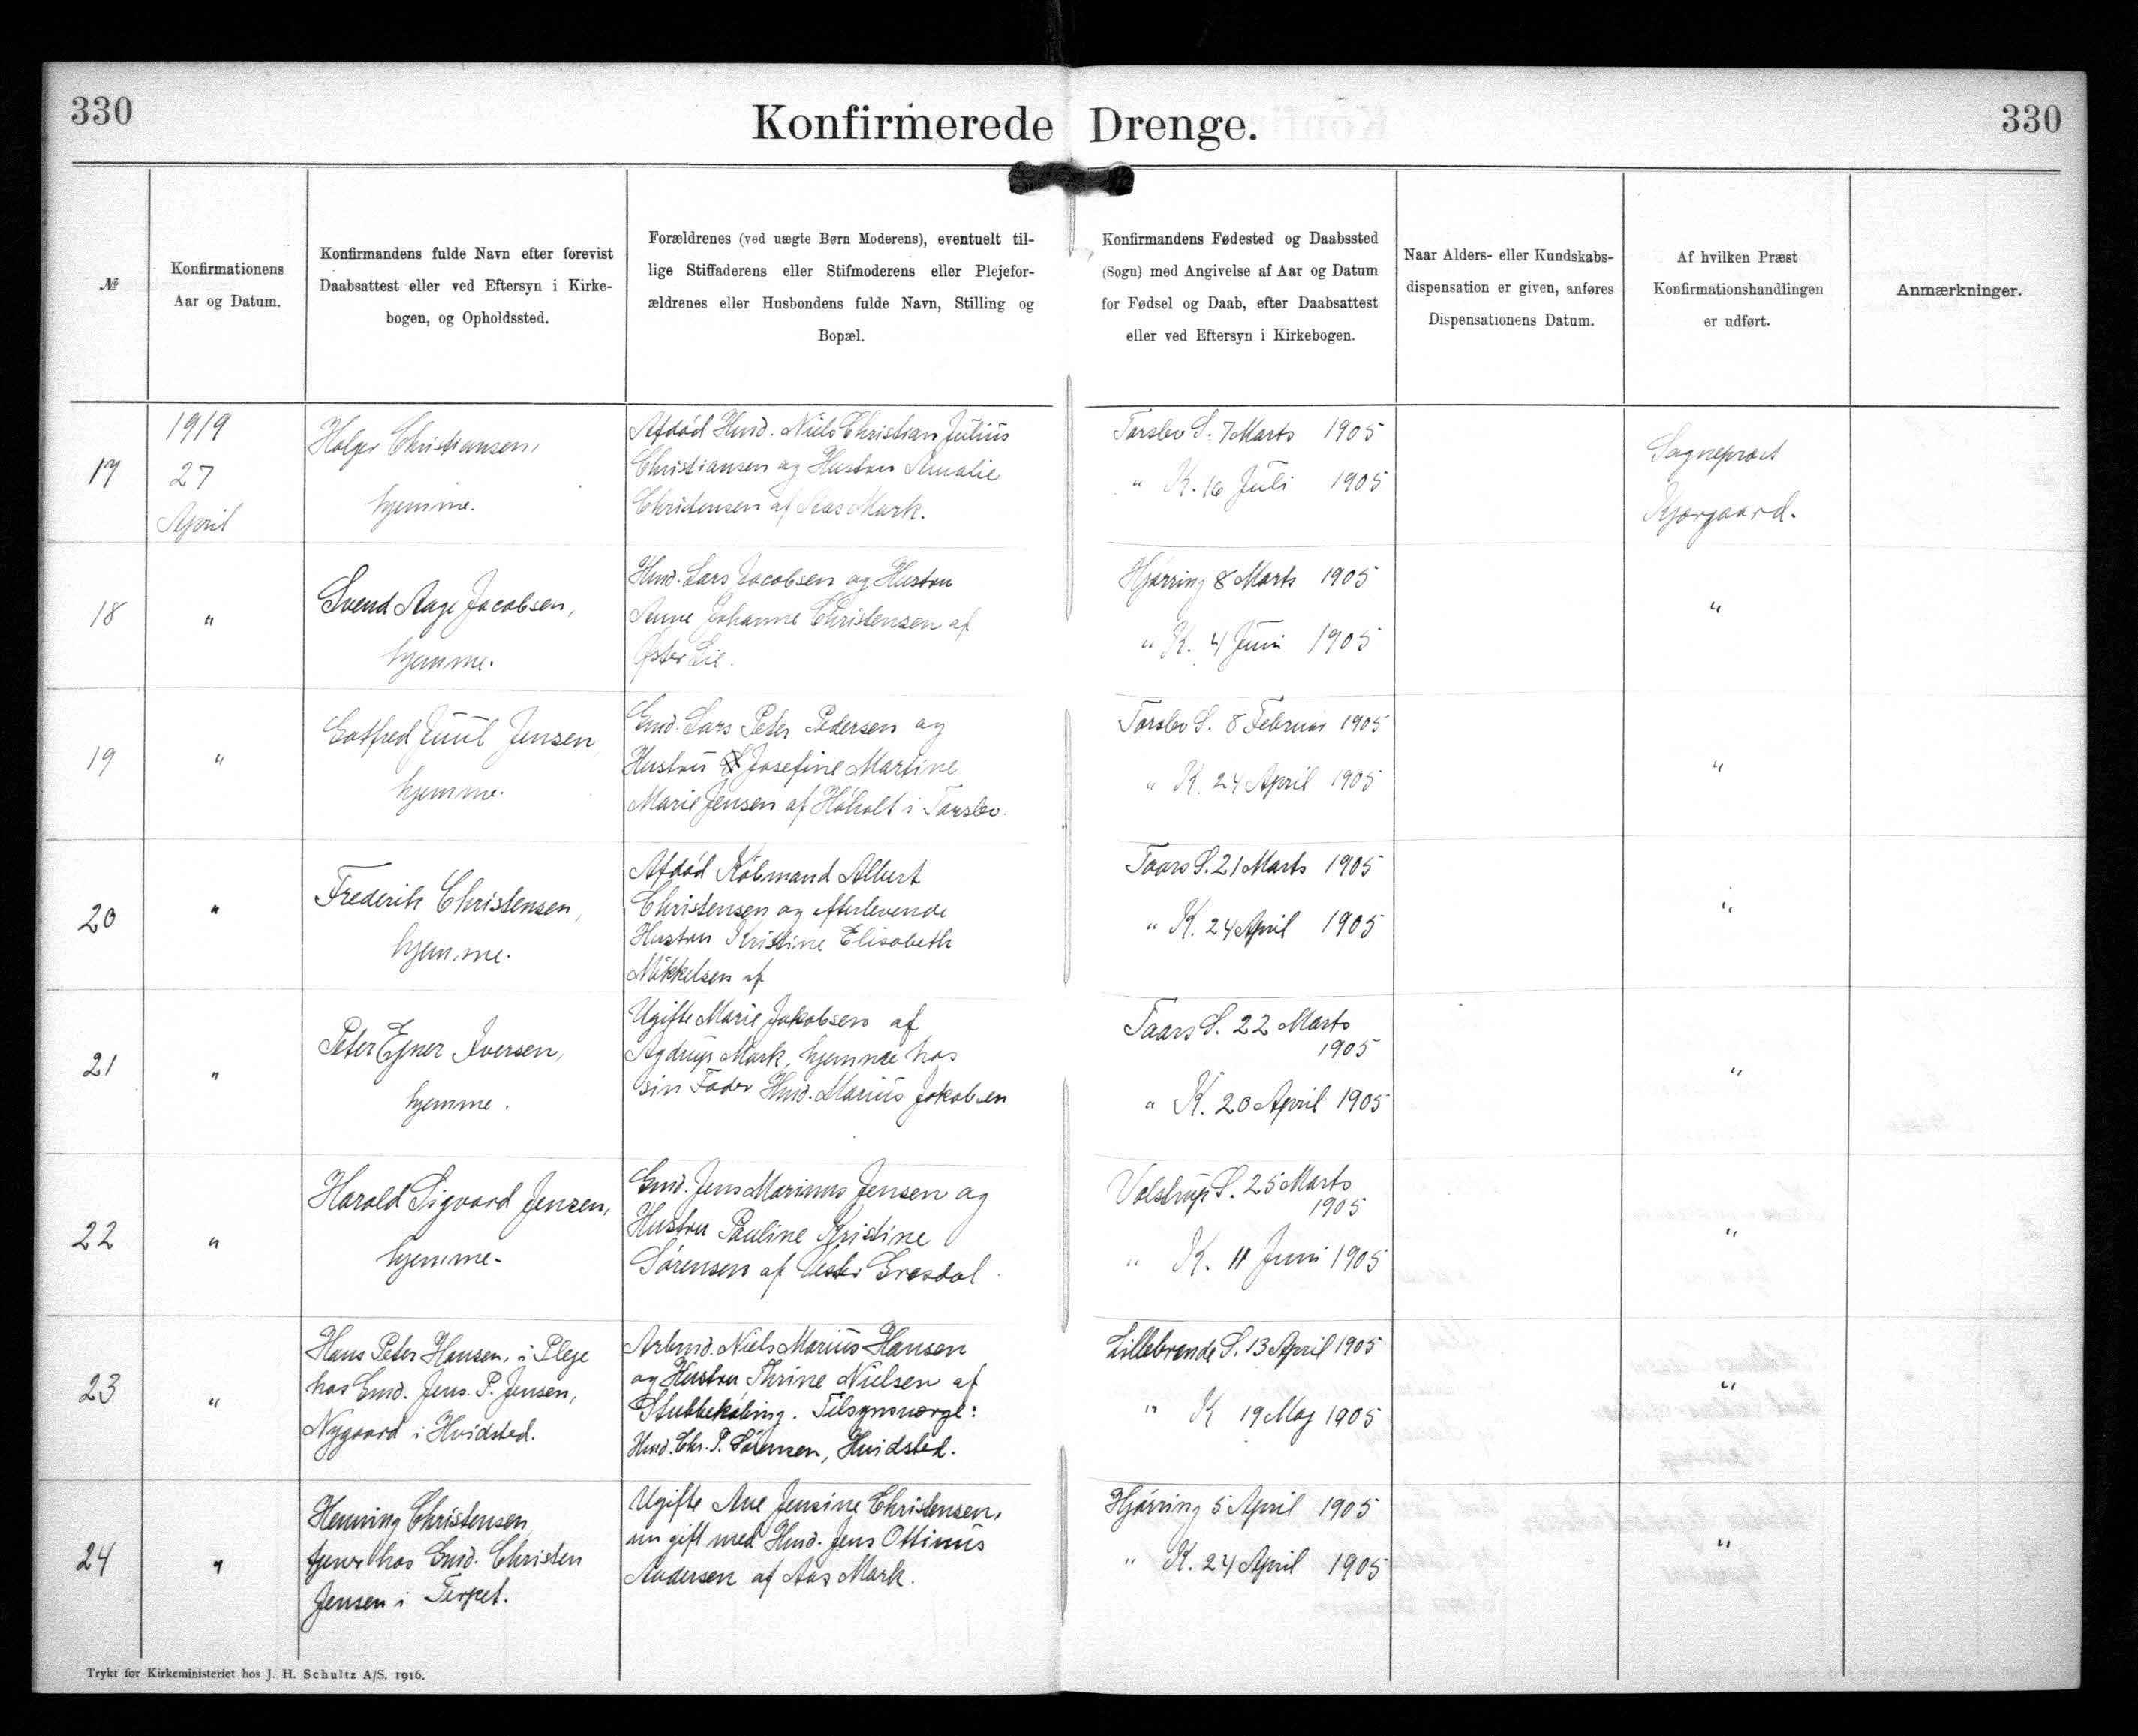 330
Konfirmerede Drenge.
330
№
Konfirmationens
Aar og Datum.
Konfirmandens fulde Navn efter forevist
Daabsattest eller ved Eftersyn i Kirke-
bogen, og Opholdssted.
Forældrenes (ved uægte Børn Moderens), eventuelt til-
lige Stiffaderens eller Stifmoderens eller Plejefor-
ældrenes eller Husbondens fulde Navn, Stilling og
Bopæl.
Konfirmandens Fødested og Daabssted
(Sogn) med Angivelse af Aar og Datum
for Fødsel og Daab, efter Daabsattest
eller ved Eftersyn i Kirkebogen.
Naar Alders- eller Kundskabs-
dispensation er given, anføres
Dispensationens Datum.
Af hvilken Præst
Konfirmationshandlingen
er udført.
Anmærkninger.
17
1919
27
April
Holger Christiansen,
hjemme.
Afdød Husd. Niels Christian Julius
Christiansen og Hustru Amalie
Christensen af Aas Mark.
Torslev S. 7 Marts 1905
" K. 16 Juli 1905
Sognepræst
Kjærgaard.
18
"
Svend Aage Jacobsen,
hjemme.
Hmd. Lars Jacobsen og Hustru
Anne Johanne Christensen af
Øster Lie.
Hjørring 8 Marts 1905
" K. 4 Juni 1905
"
19
"
Gotfred Juul Jensen,
hjemme.
Gmd. Lars Peter Pedersen og
Hustru Josefine Martine
Marie Jensen af Høholt i Torslev.
Torslev S. 8 Februar 1905
" K. 24 April 1905
"
20
"
Frederik Christensen,
hjemme.
Afdød Købmand Albert
Christensen og efterlevende
Hustru Kristine Elisabeth
Mikkelsen af
Taars S. 21 Marts 1905
" K. 24 April 1905
"
21
"
Peter Ejner Iversen,
hjemme.
Ugifte Marie Jakobsen af
Agdrup Mark, hjemme hos
sin Fader Hmd. Marius Jakobsen
Taars S. 22 Marts
1905
" K. 20 April 1905
"
22
"
Harald Sigvard Jensen,
hjemme.
Gmd. Jens Marinus Jensen og
Hustru Pauline Kristine
Sørensen af Vester Gresdal
Volstrup S. 25 Marts
1905
" K. 11 Juni 1905
"
23
"
Hans Peter Hansen, i Pleje
hos Gmd. Jens. P. Jensen,
Nygaard i Hvidsted.
Arbmd. Niels Marius Hansen
og Hustru Thrine Nielsen af
Stubbekøbing. Tilsynsværge:
Hmd. Chr. P. Sørensen, Hvidsted.
Lillebrende S. 13 April 1905
" K 19 Maj 1905
"
24
"
Henning Christensen,
tjener hos Gmd. Christen
Jensen i Terpet.
Ugifte Ane Jensine Christensen,
nu gift med Hmd. Jens Ottinus
Andersen af Aas Mark.
Hjørring 5 April 1905
" K. 24 April 1905
"
Trykt for Kirkeministeriet hos J. H. Schultz A/S. 1916.